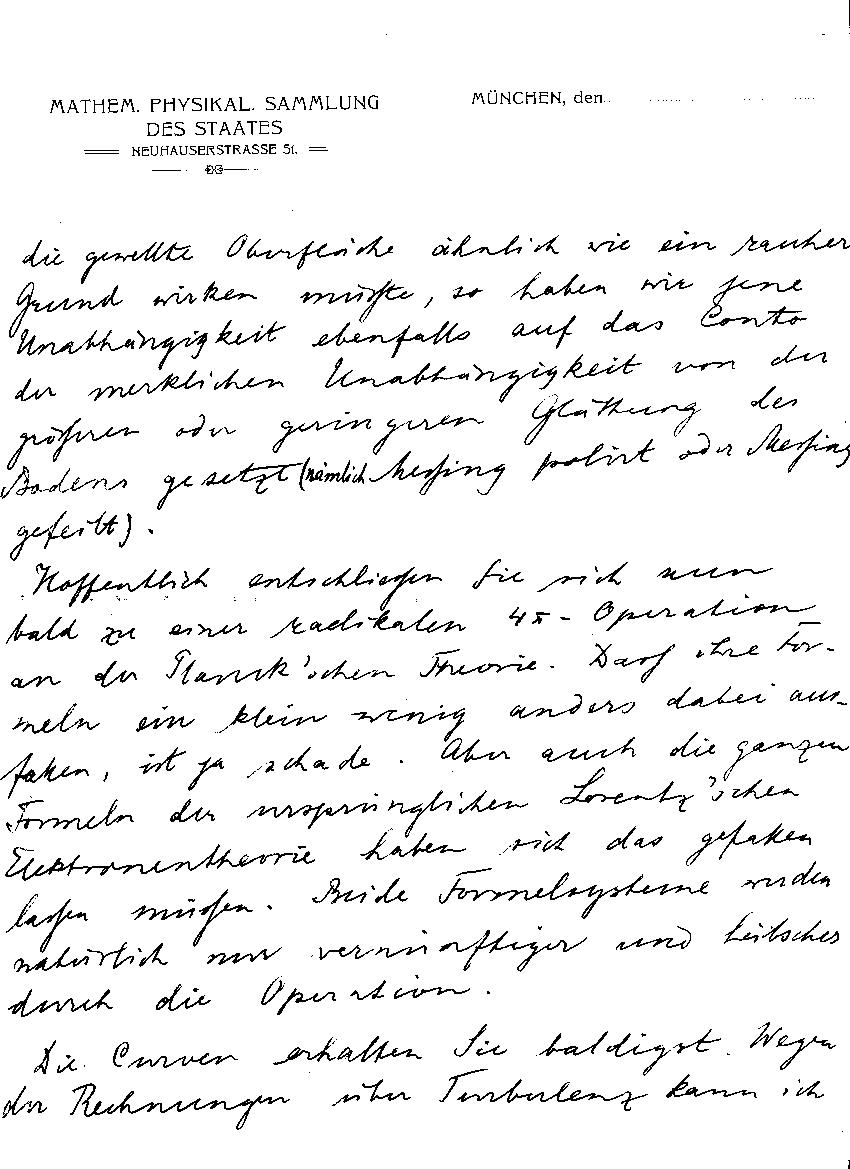 MATHEM. PHYSIKAL. SAMMLUNG
DES STAATES
NEUHAUSERSTRASSE 51.
MÜNCHEN, den
die gewellte Oberfläche ähnlich wie ein rauher
Grund wirken müsste, so haben wir jene
Unabhängigkeit ebenfalls auf das Conto
der merklichen Unabhängigkeit von der
größeren oder geringeren Glättung des
Bodens gesetzt (nämlich Messing polirt oder Messing
gefeilt).
Hoffentlich entschließen Sie sich nun
bald zu einer radikalen 4π-Operation
an der Planck'schen Theorie. Dass ihre For-
meln ein klein wenig anders dabei aus-
fallen, ist ja schade. Aber auch die ganzen
Formeln der ursprünglichen Lorentz'schen
Elektronentheorie haben sich das gefallen
lassen müssen. Beide Formelsysteme werden
natürlich nur vernünftiger und hübscher
durch die Operation.
Die Curven erhalten Sie baldigst. Wegen
der Rechnungen über Turbulenz kann ich